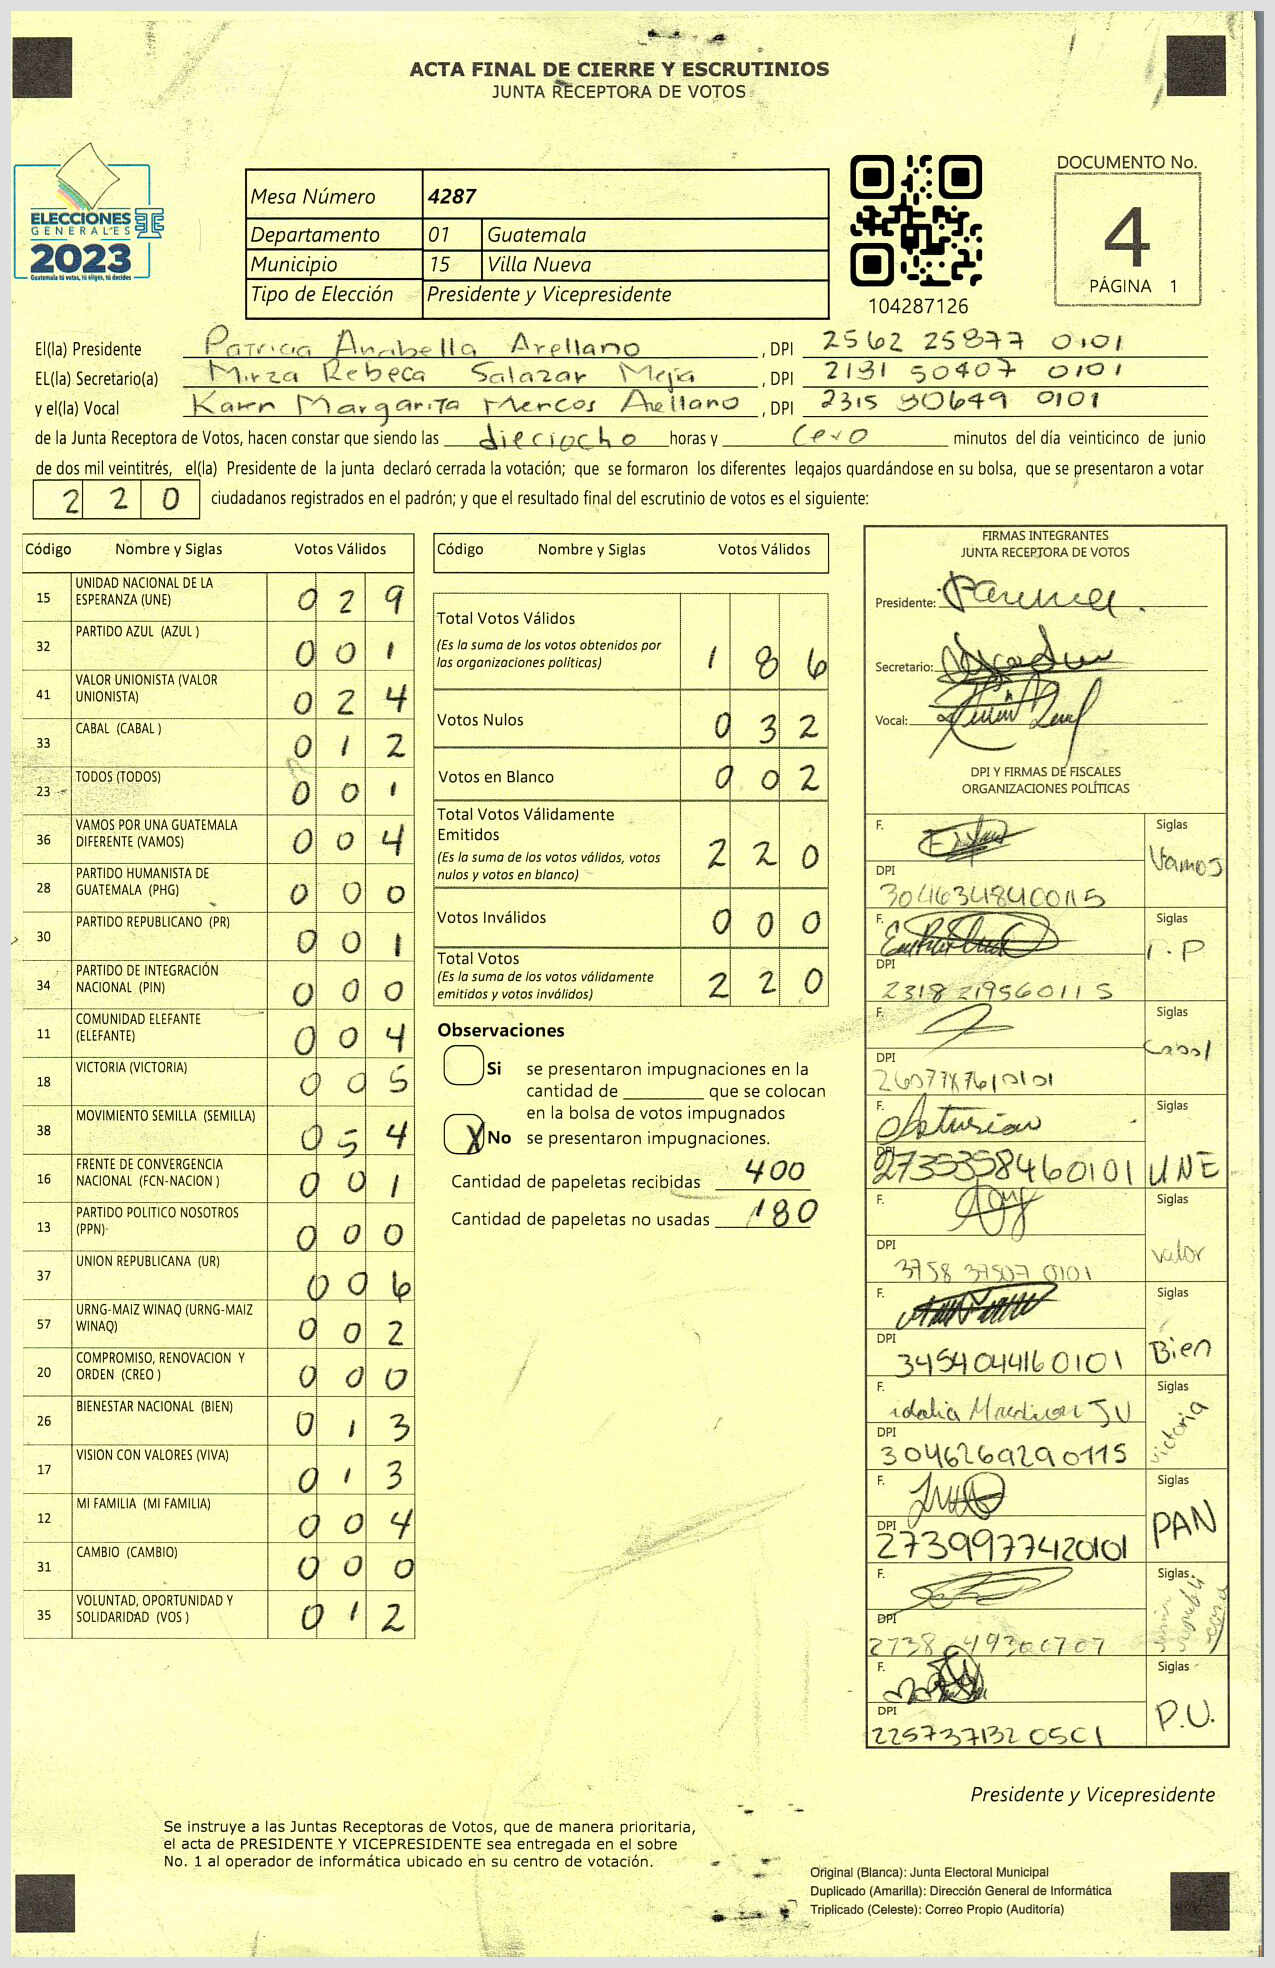 ACTA FINAL DE CIERRE Y ESCRUTINIOS
JUNTA RECEPTORA DE VOTOS
ELECCIONES
GENERALES
2023
Guatemala tú votas, tú eliges, tú decides
Mesa Número 4287
Departamento 01 Guatemala
Municipio 15 Villa Nueva
Tipo de Elección Presidente y Vicepresidente
104287126
DOCUMENTO No.
4
PÁGINA 1
El(la) Presidente Patricia Anabella Arellano , DPI 2562 25877 0101
EL(la) Secretario(a) Mirza Rebeca Salazar Mejia , DPI 2131 50407 0101
y el(la) Vocal Karen Margarita Mencos Arellano , DPI 2315 30649 0101
de la Junta Receptora de Votos, hacen constar que siendo las dieciocho horas y cero minutos del día veinticinco de junio
de dos mil veintitrés, el(la) Presidente de la junta declaró cerrada la votación; que se formaron los diferentes legajos guardándose en su bolsa, que se presentaron a votar
220 ciudadanos registrados en el padrón; y que el resultado final del escrutinio de votos es el siguiente:
Código Nombre y Siglas Votos Válidos
15 UNIDAD NACIONAL DE LA ESPERANZA (UNE) 029
32 PARTIDO AZUL (AZUL ) 001
41 VALOR UNIONISTA (VALOR UNIONISTA) 024
33 CABAL (CABAL ) 012
23 TODOS (TODOS) 001
36 VAMOS POR UNA GUATEMALA DIFERENTE (VAMOS) 004
28 PARTIDO HUMANISTA DE GUATEMALA (PHG) 000
30 PARTIDO REPUBLICANO (PR) 001
34 PARTIDO DE INTEGRACIÓN NACIONAL (PIN) 000
11 COMUNIDAD ELEFANTE (ELEFANTE) 004
18 VICTORIA (VICTORIA) 005
38 MOVIMIENTO SEMILLA (SEMILLA) 054
16 FRENTE DE CONVERGENCIA NACIONAL (FCN-NACION ) 001
13 PARTIDO POLITICO NOSOTROS (PPN) 000
37 UNION REPUBLICANA (UR) 006
57 URNG-MAIZ WINAQ (URNG-MAIZ WINAQ) 002
20 COMPROMISO, RENOVACION Y ORDEN (CREO ) 000
26 BIENESTAR NACIONAL (BIEN) 013
17 VISION CON VALORES (VIVA) 013
12 MI FAMILIA (MI FAMILIA) 004
31 CAMBIO (CAMBIO) 000
35 VOLUNTAD, OPORTUNIDAD Y SOLIDARIDAD (VOS ) 012
Código Nombre y Siglas Votos Válidos
Total Votos Válidos
(Es la suma de los votos obtenidos por
las organizaciones políticas) 186
Votos Nulos 032
Votos en Blanco 002
Total Votos Válidamente
Emitidos
(Es la suma de los votos válidos, votos
nulos y votos en blanco) 220
Votos Inválidos 000
Total Votos
(Es la suma de los votos válidamente
emitidos y votos inválidos) 220
Observaciones
Si se presentaron impugnaciones en la
cantidad de ________ que se colocan
en la bolsa de votos impugnados
X No se presentaron impugnaciones.
Cantidad de papeletas recibidas 400
Cantidad de papeletas no usadas 180
FIRMAS INTEGRANTES
JUNTA RECEPTORA DE VOTOS
Presidente:
Secretario:
Vocal:
DPI Y FIRMAS DE FISCALES
ORGANIZACIONES POLÍTICAS
F. Siglas Vamos
DPI 3046348400115
F. Siglas P
DPI 2318 21956 0115
F. Siglas Cabal
DPI
F. Siglas UNE
DPI 2735358460101
F. Siglas valor
DPI 3758 37507 0101
F. Siglas Bien
DPI 3454044160101
F. idalia Siglas victoria
DPI 3046269290115
F. Siglas PAN
DPI 2739977420101
F. Siglas
DPI 2738
F. Siglas P.U.
DPI 225737132 0501
Presidente y Vicepresidente
Se instruye a las Juntas Receptoras de Votos, que de manera prioritaria,
el acta de PRESIDENTE Y VICEPRESIDENTE sea entregada en el sobre
No. 1 al operador de informática ubicado en su centro de votación.
Original (Blanca): Junta Electoral Municipal
Duplicado (Amarilla): Dirección General de Informática
Triplicado (Celeste): Correo Propio (Auditoría)